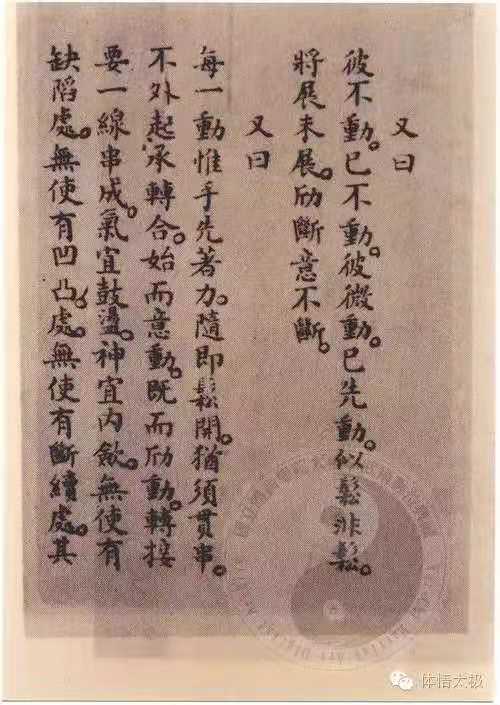 又曰
彼不動。已不動。彼微動。已先動。似鬆非鬆。
將展未展。劤斷意不斷。
又曰
每一動惟手先著力。隨即鬆開。猶須貫串。
不外起承轉合。始而意動。既而劤動。轉接
要一線串成。氣宜鼓盪。神宜內歛。無使有
缺陷處。無使有凹凸處。無使有斷續處。其
体悟太极